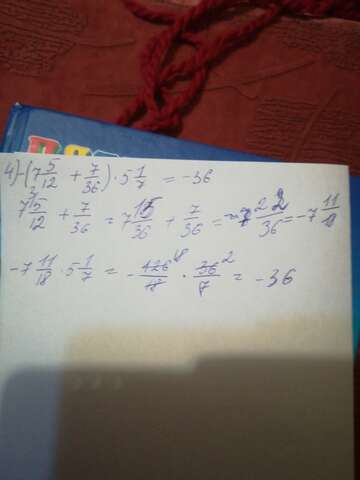 4) -(7 5/12 + 7/36) · 5 1/7 = -36
7 5/12 + 7/36 = 7 15/36 + 7/36 = -7 22/36 = -7 11/18
-7 11/18 · 5 1/7 = - 126/18 · 36/7 = -36